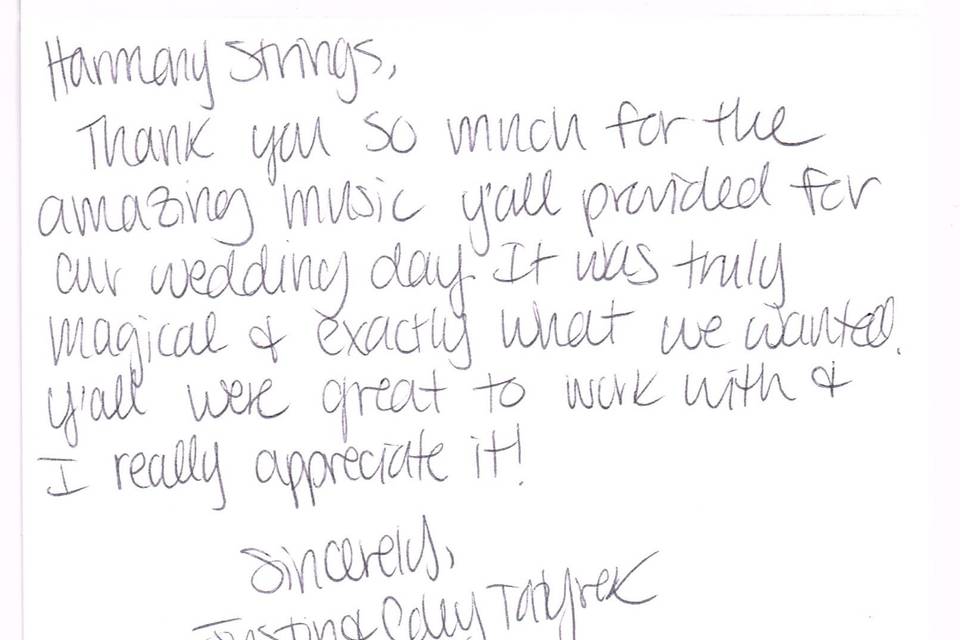 Harmony Strings,
Thank you so much for the
amazing music y'all provided for
our wedding day. It was truly
magical & exactly what we wanted.
Y'all were great to work with &
I really appreciate it!
Sincerely,
Justin &